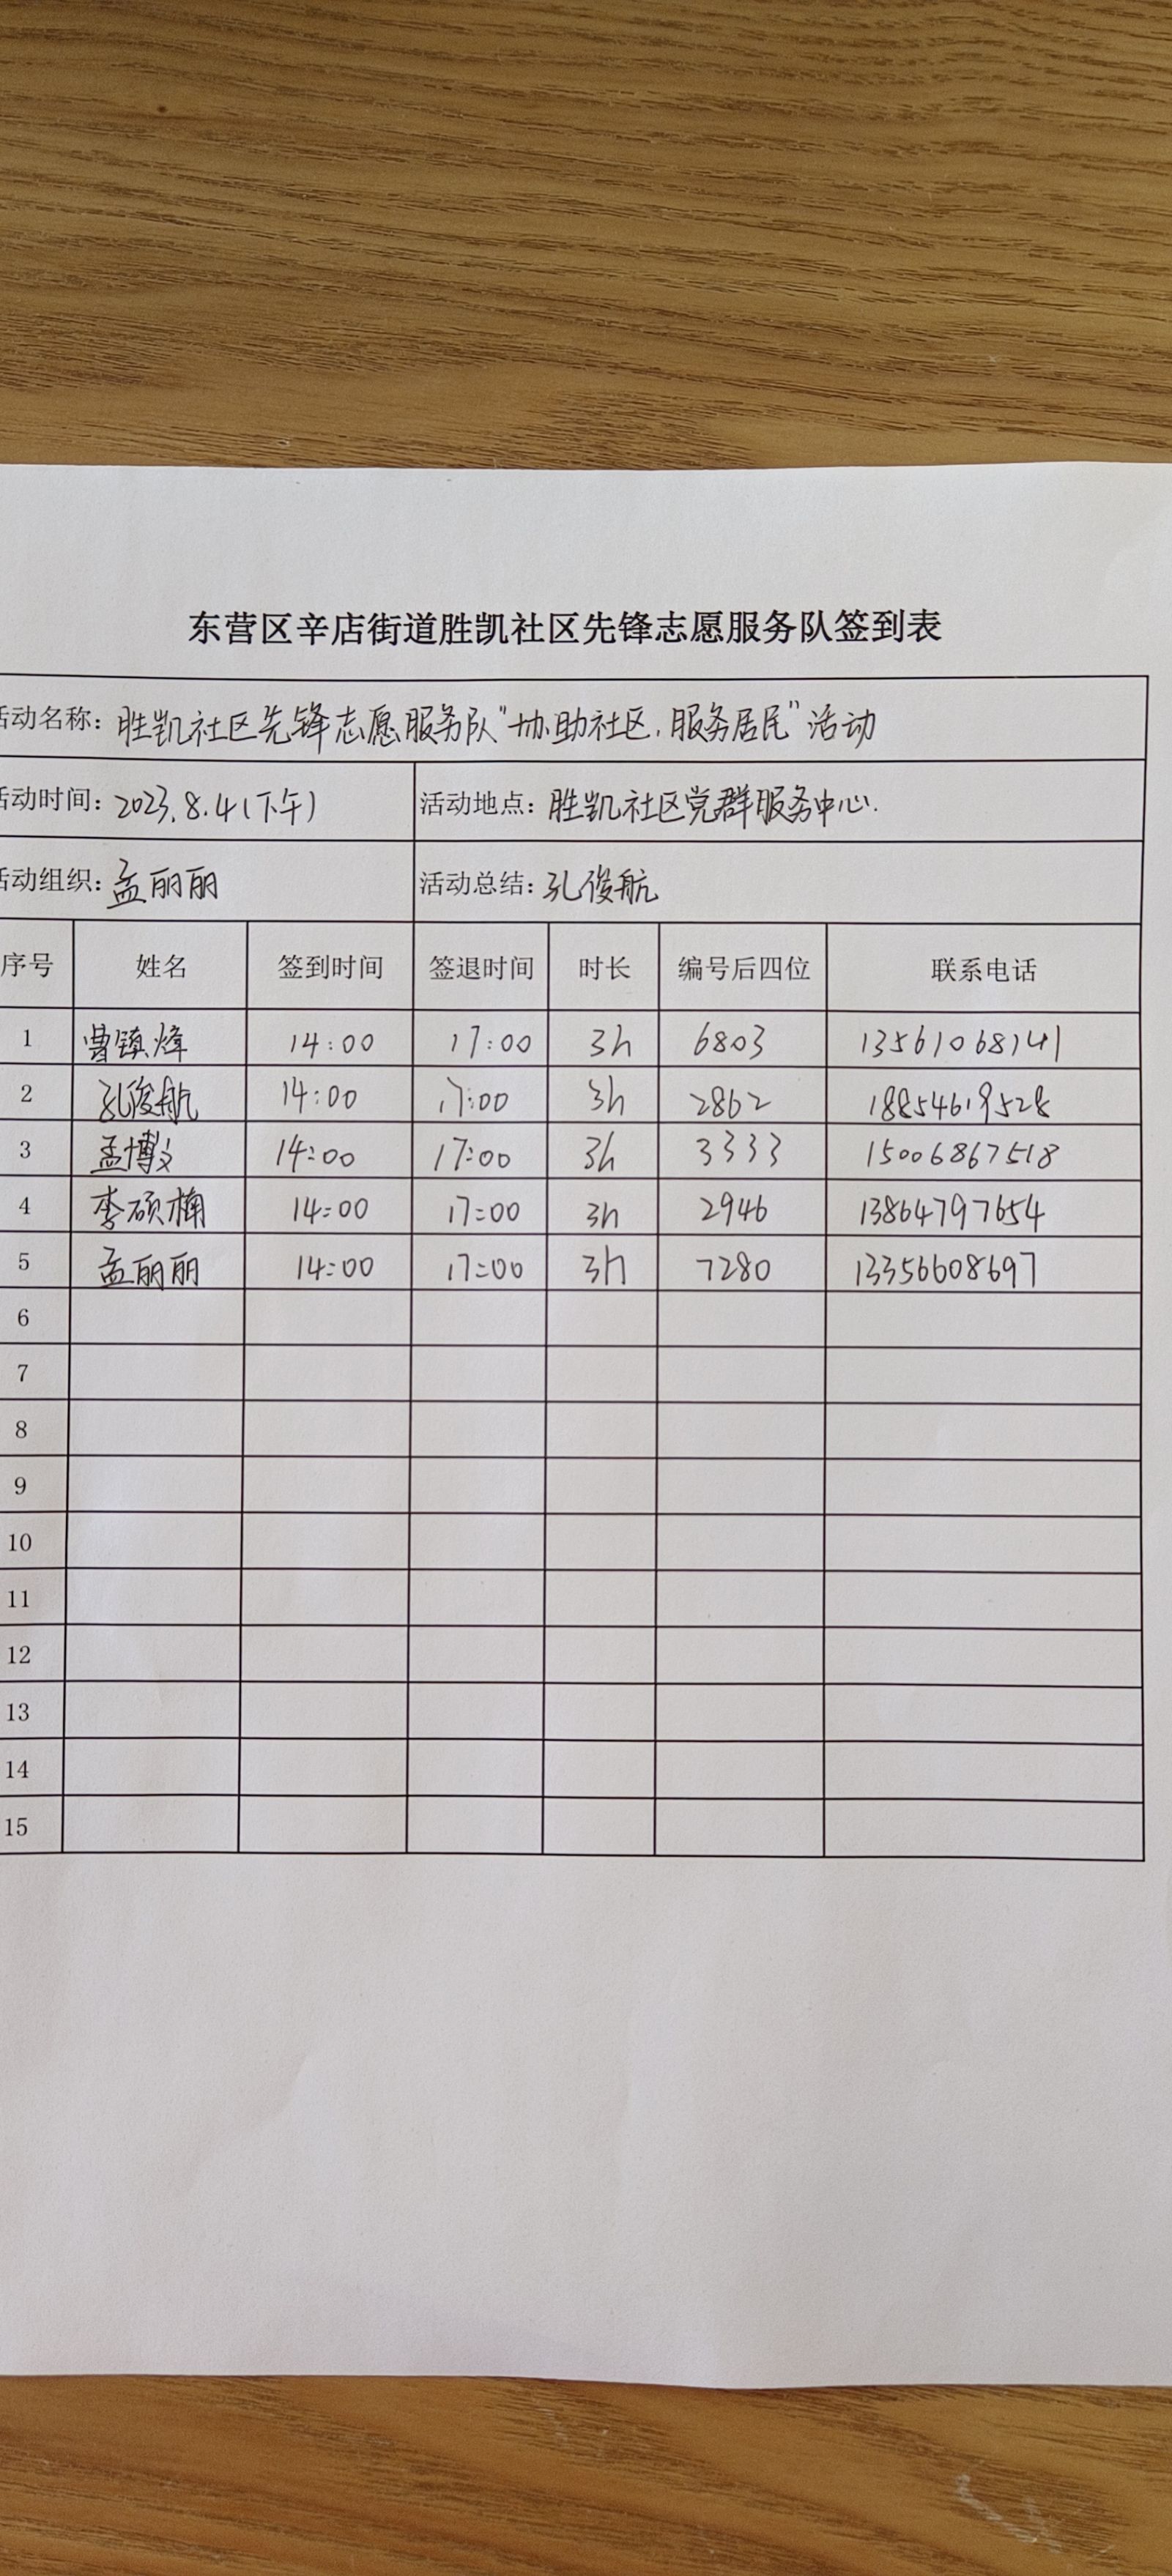 东营区辛店街道胜凯社区先锋志愿服务队签到表
活动名称：胜凯社区先锋志愿服务队“协助社区，服务居民”活动
活动时间：2023.8.4（下午） 活动地点：胜凯社区党群服务中心.
活动组织：孟丽丽 活动总结：孔俊航
序号 姓名 签到时间 签退时间 时长 编号后四位 联系电话
1 曹镇烽 14:00 17:00 3h 6803 13561068141
2 孔俊航 14:00 17:00 3h 2862 18854619528
3 孟博文 14:00 17:00 3h 3333 15006867518
4 李硕楠 14:00 17:00 3h 2946 13864797654
5 孟丽丽 14:00 17:00 3h 7280 13356608697
6
7
8
9
10
11
12
13
14
15